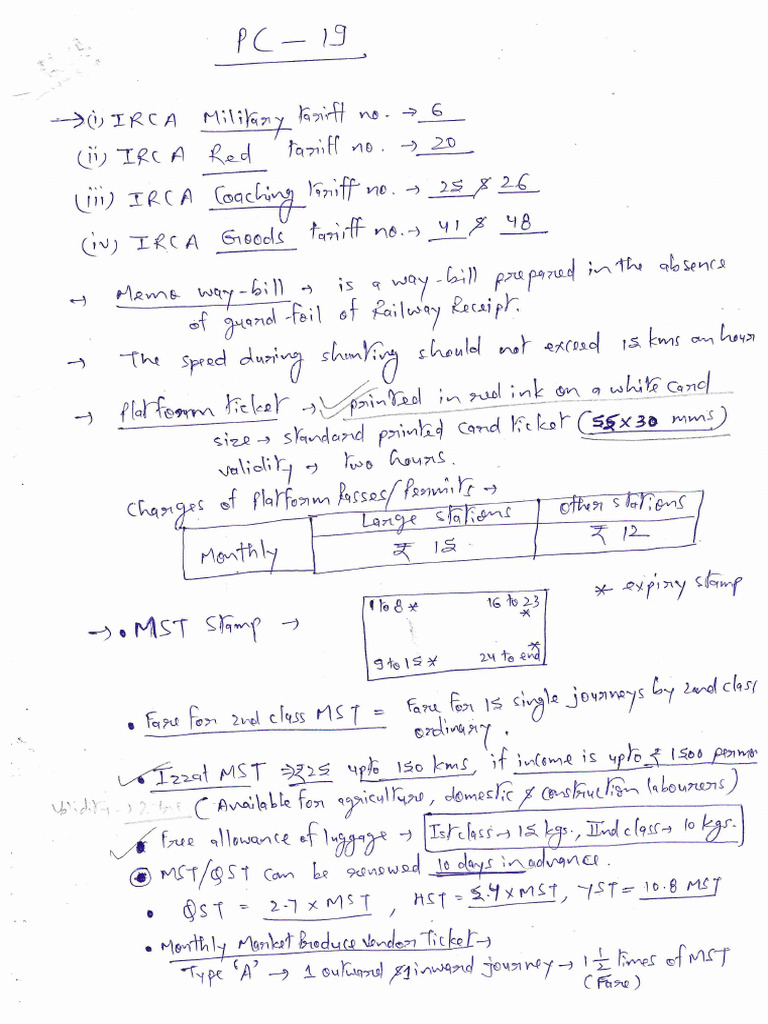 PC - 19
→ (i) IRCA Military tariff no. → 6
(ii) IRCA Red tariff no. → 20
(iii) IRCA Coaching tariff no. → 25 & 26
(iv) IRCA Goods tariff no. → 41 & 48
→ Memo way-bill → is a way-bill prepared in the absence
of guard-foil of Railway Receipt.
→ The speed during shunting should not exceed 15 kms an hour
→ Platform ticket → ✓ printed in red ink on a white card
size → standard printed card ticket (55 x 30 mms)
validity → two hours.
Charges of Platform Passes/Permits →
Large stations Other stations
Monthly ₹ 15 ₹ 12
* expiry stamp
→ • MST Stamp →
1 to 8 * 16 to 23 *
9 to 15 * 24 to end *
• Fare for 2nd class MST = Fare for 15 single journeys by 2nd class
ordinary.
✓ • Izzat MST ⇒ ₹25 upto 150 kms, if income is upto ₹ 1500 per mon
(Available for agriculture, domestic & construction labourers)
Validity →
✓ • Free allowance of luggage → Ist class → 15 kgs., IInd class → 10 kgs.
• MST/QST can be renewed 10 days in advance.
• QST = 2.7 x MST, HST = 5.4 x MST, YST = 10.8 MST
• Monthly Market Produce Vendor Ticket →
Type 'A' → 1 outward & 1 inward journey → 1 1/2 times of MST
(Fare)